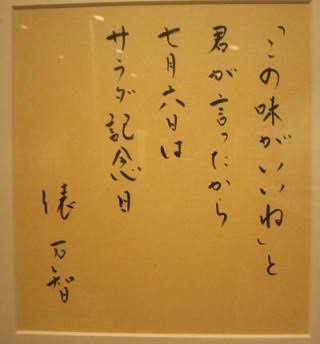 「この味がいいね」と
君が言ったから
七月六日は
サラダ記念日
俵万智